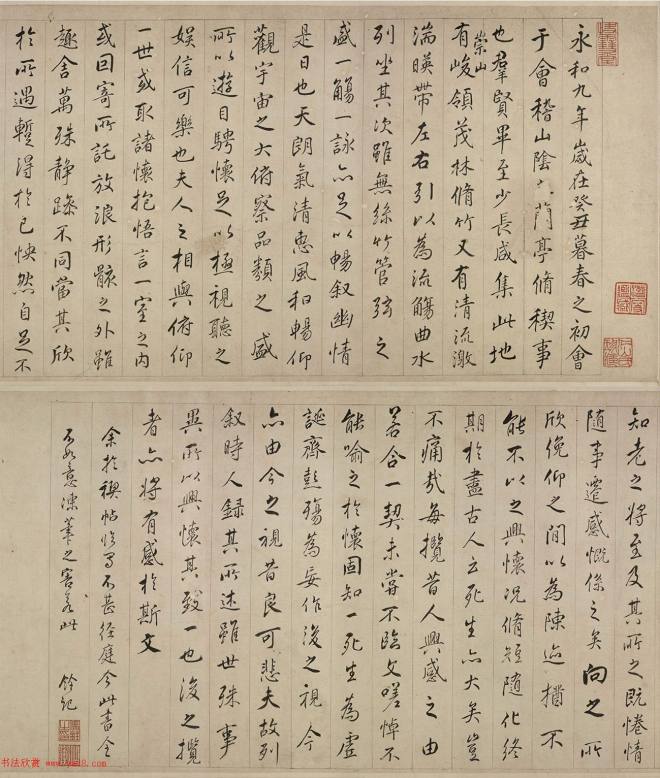 永和九年歲在癸丑暮春之初會
于會稽山陰之蘭亭脩稧事
也羣賢畢至少長咸集此地
有崇山峻領茂林脩竹又有清流激
湍暎帶左右引以為流觴曲水
列坐其次雖無絲竹管弦之
盛一觴一詠亦足以暢叙幽情
是日也天朗氣清惠風和暢仰
觀宇宙之大俯察品類之盛
所以遊目騁懷足以極視聽之
娛信可樂也夫人之相與俯仰
一世或取諸懷抱悟言一室之內
或因寄所託放浪形骸之外雖
趣舍萬殊静躁不同當其欣
於所遇蹔得於己怏然自足不
知老之將至及其所之既惓情
隨事遷感慨係之矣向之所
欣俛仰之間以為陳迹猶不
能不以之興懷況脩短隨化終
期於盡古人云死生亦大矣豈
不痛哉每攬昔人興感之由
若合一契未嘗不臨文嗟悼不
能喻之於懷固知一死生為虛
誕齊彭殤為妄作後之視今
亦由今之視昔良可悲夫故列
叙時人録其所述雖世殊事
異所以興懷其致一也後之攬
者亦將有感於斯文
余於禊帖臨寫不甚徑庭今此書全
不如意凍筆之害
书法欣赏 www.yac8.com